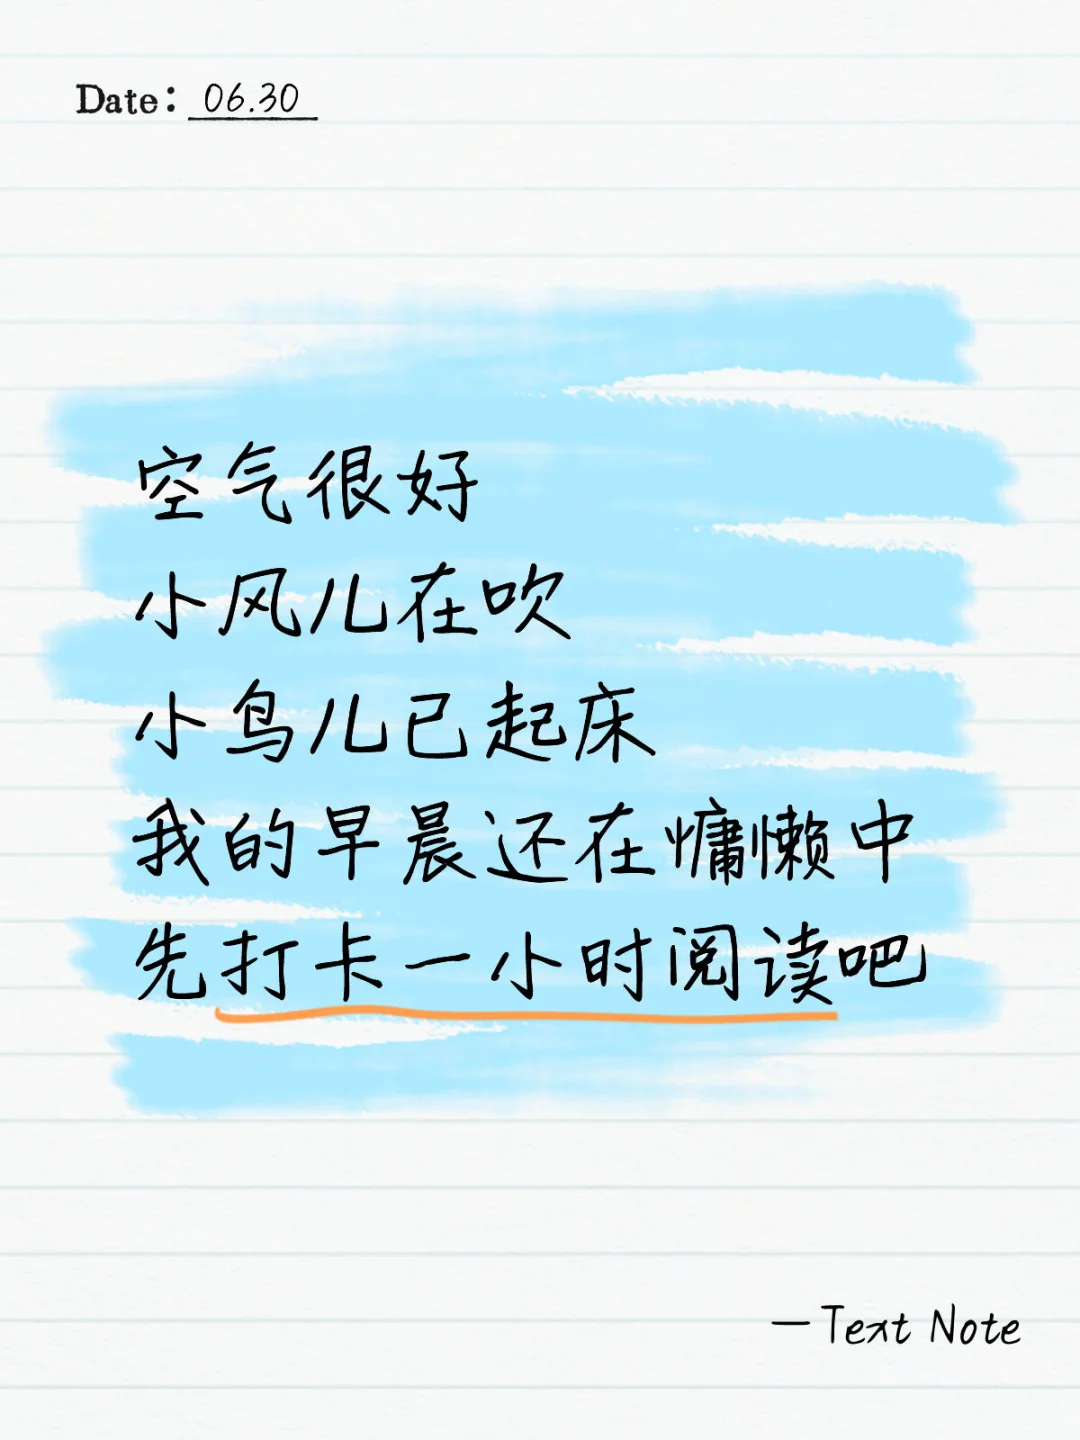 Date: 06.30
空气很好
小风儿在吹
小鸟儿已起床
我的早晨还在慵懒中
先打卡一小时阅读吧
—Text Note